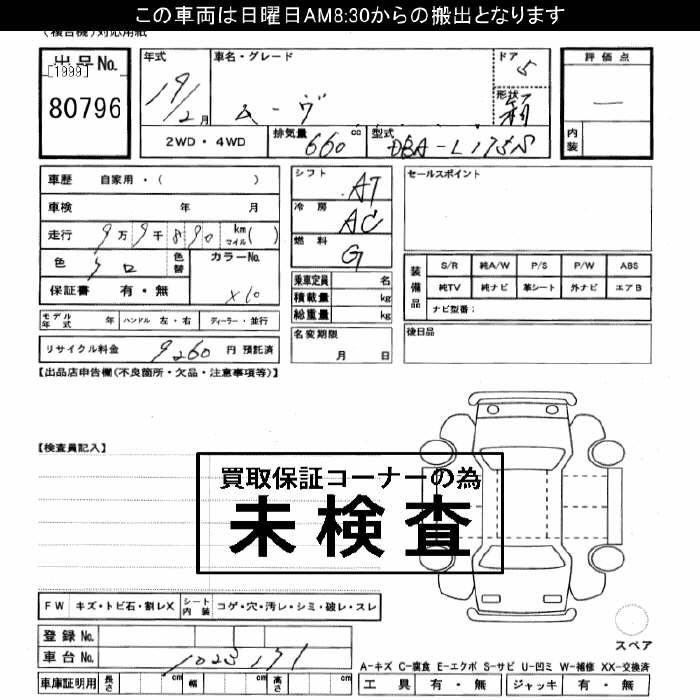 この車両は日曜日AM8:30からの搬出となります
(複合機)対応用紙
出品No. [1999] 80796
年式 19/2月
車名・グレード ムーヴ
ドア 5
形状 箱
評価点 —
内装
2WD・4WD
排気量 660 cc
型式 DBA-L175S
車歴 自家用・( )
車検 年 月
走行 9万9千890 km マイル( )
色 シロ
色替
カラーNo. X10
保証書 有・無
モデル年式 年 ハンドル 左・右 ディーラー・並行
リサイクル料金 9260 円 預託済
シフト AT
冷房 AC
燃料 G
乗車定員 名
積載量 kg
総重量 kg
名変期限 月 日
セールスポイント
装備品
S/R 純A/W P/S P/W ABS
純TV 純ナビ 革シート 外ナビ エアB
ナビ型番:
後日品
【出品店申告欄(不良箇所・欠品・注意事項等)】
【検査員記入】
買取保証コーナーの為
未検査
FW キズ・トビ石・割レX シート内装 コゲ・穴・汚レ・シミ・破レ・スレ
登録No.
車台No. 1023171
車庫証明用 長さ cm 幅 cm 高さ cm
スペア
A-キズ C-腐食 E-エクボ S-サビ U-凹ミ W-補修 XX-交換済
工具 有・無 ジャッキ 有・無